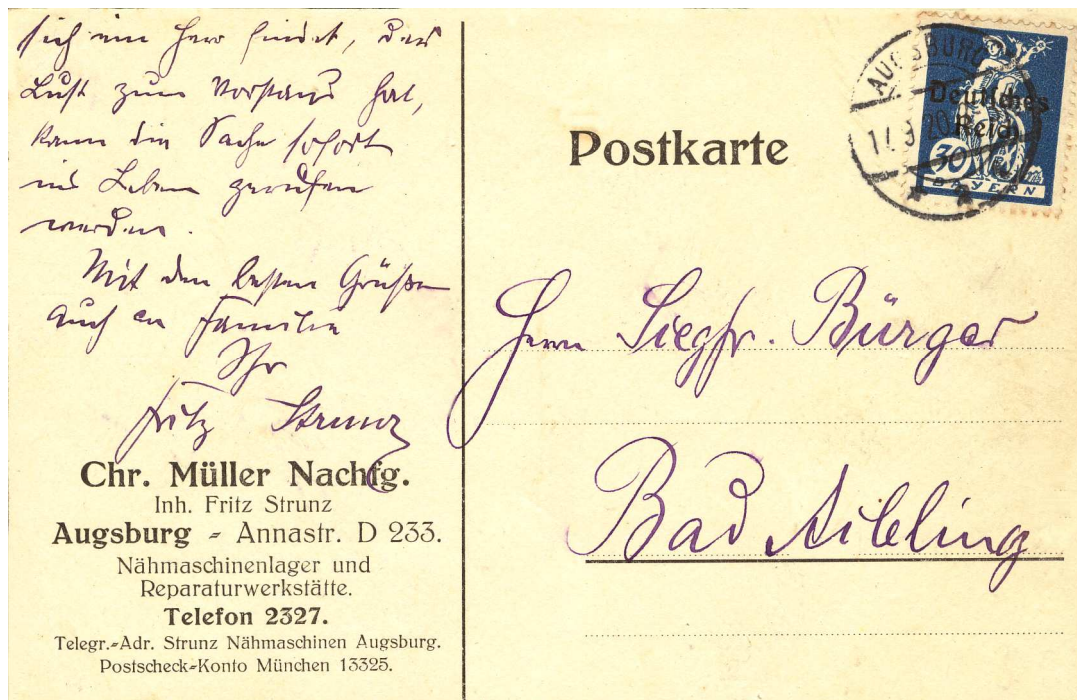 sich ein Herr findet, der
Lust zum Vorstand hat,
kann die Sache sofort
ins Leben gerufen
werden.
Mit den besten Grüßen
auch an Familie
Ihr
Fritz Strunz
Chr. Müller Nachfg.
Inh. Fritz Strunz
Augsburg - Annastr. D 233.
Nähmaschinenlager und
Reparaturwerkstätte.
Telefon 2327.
Telegr.-Adr. Strunz Nähmaschinen Augsburg.
Postscheck-Konto München 13325.
Postkarte
AUGSBURG
Deutsches
Reich
30
BAYERN
Herrn Siegfr. Bürger
Bad Aibling